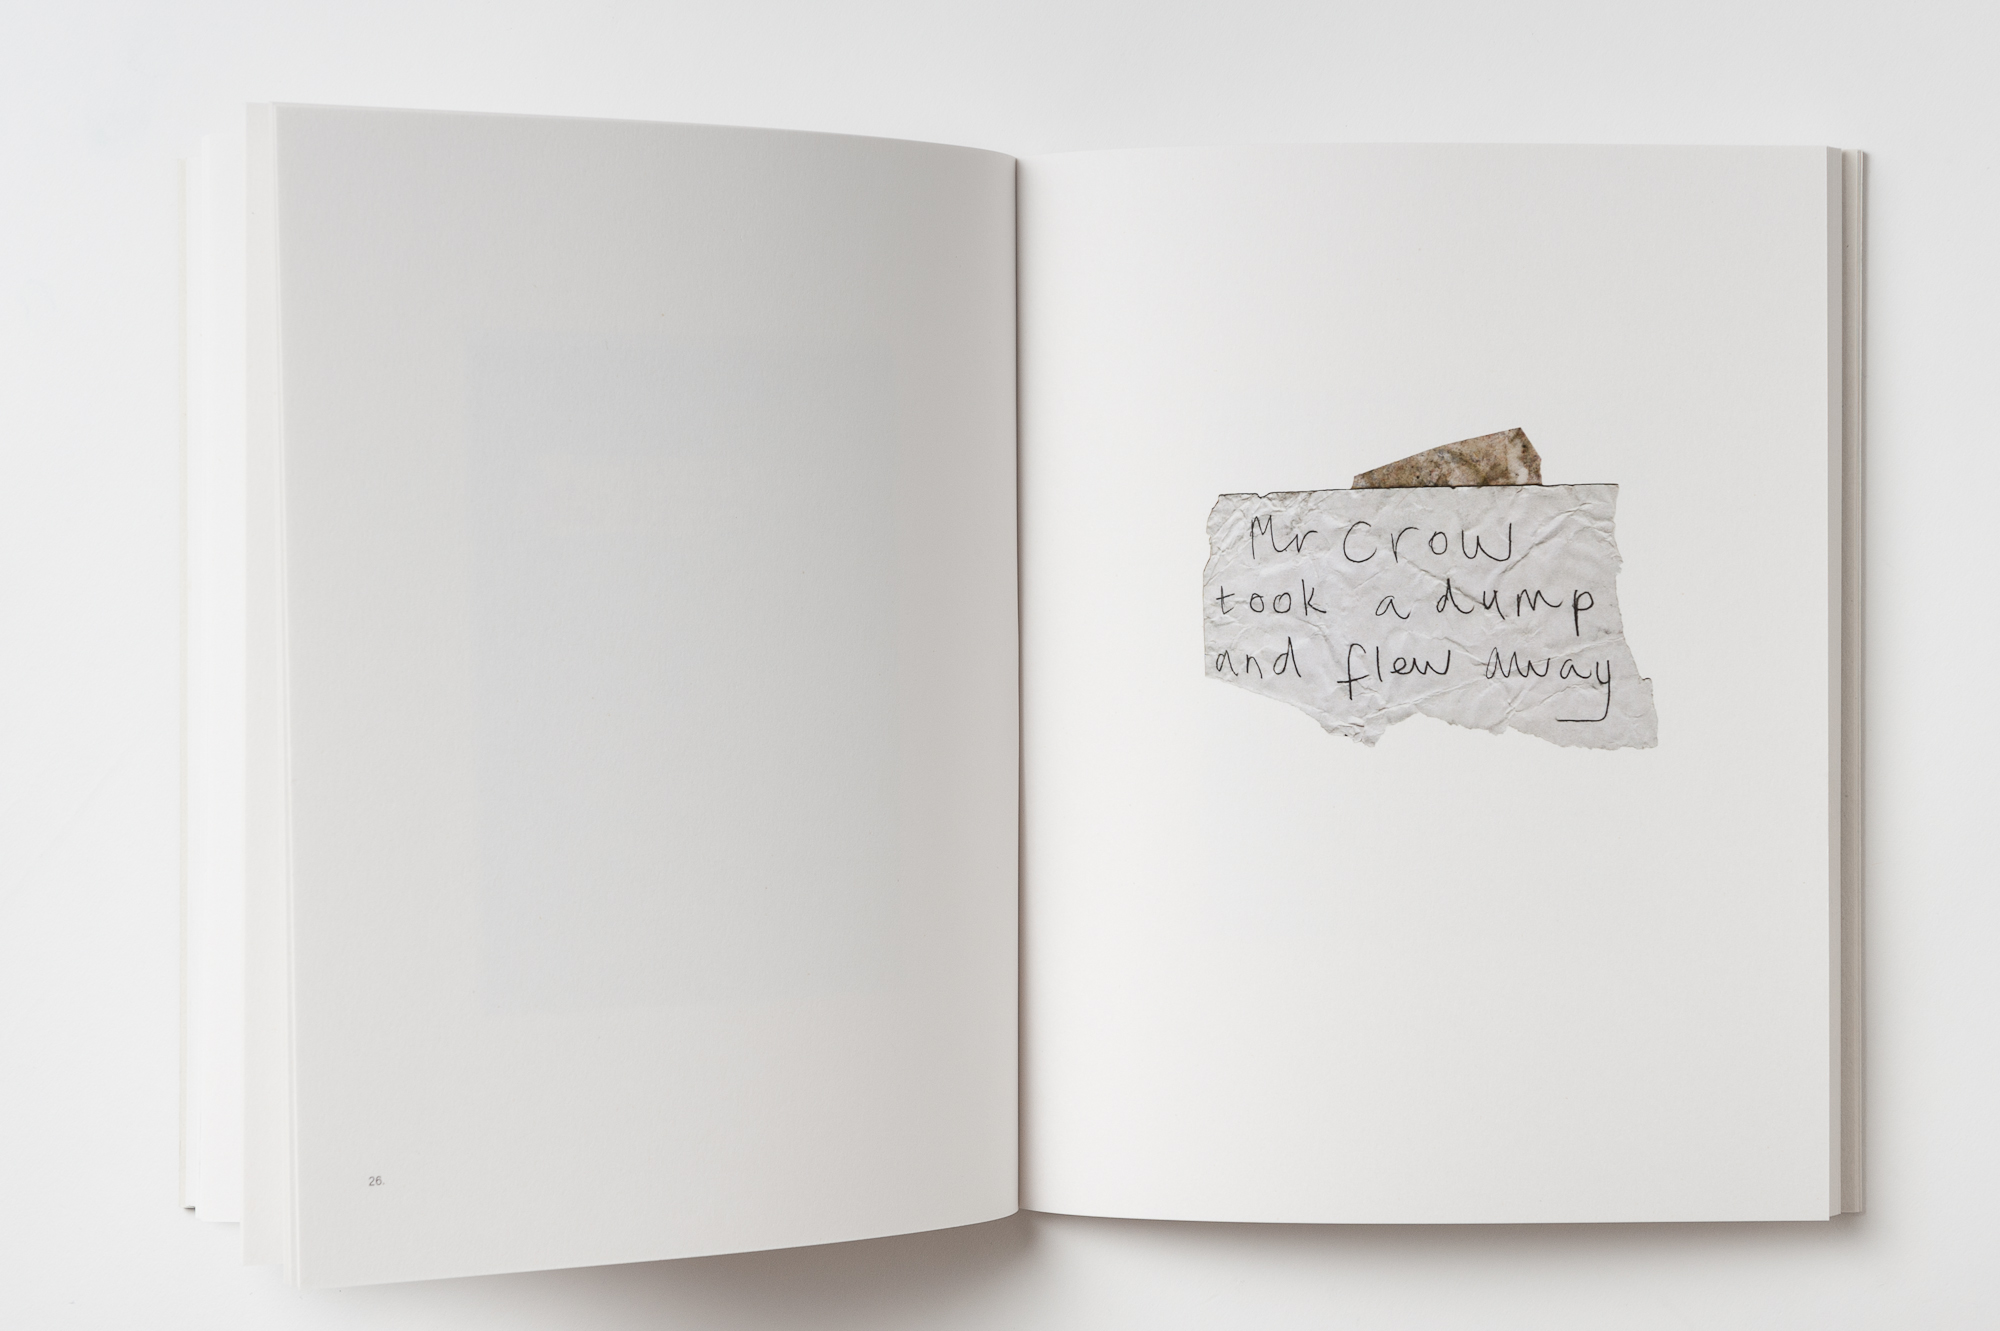 Mr Crow
took a dump
and flew away
26.